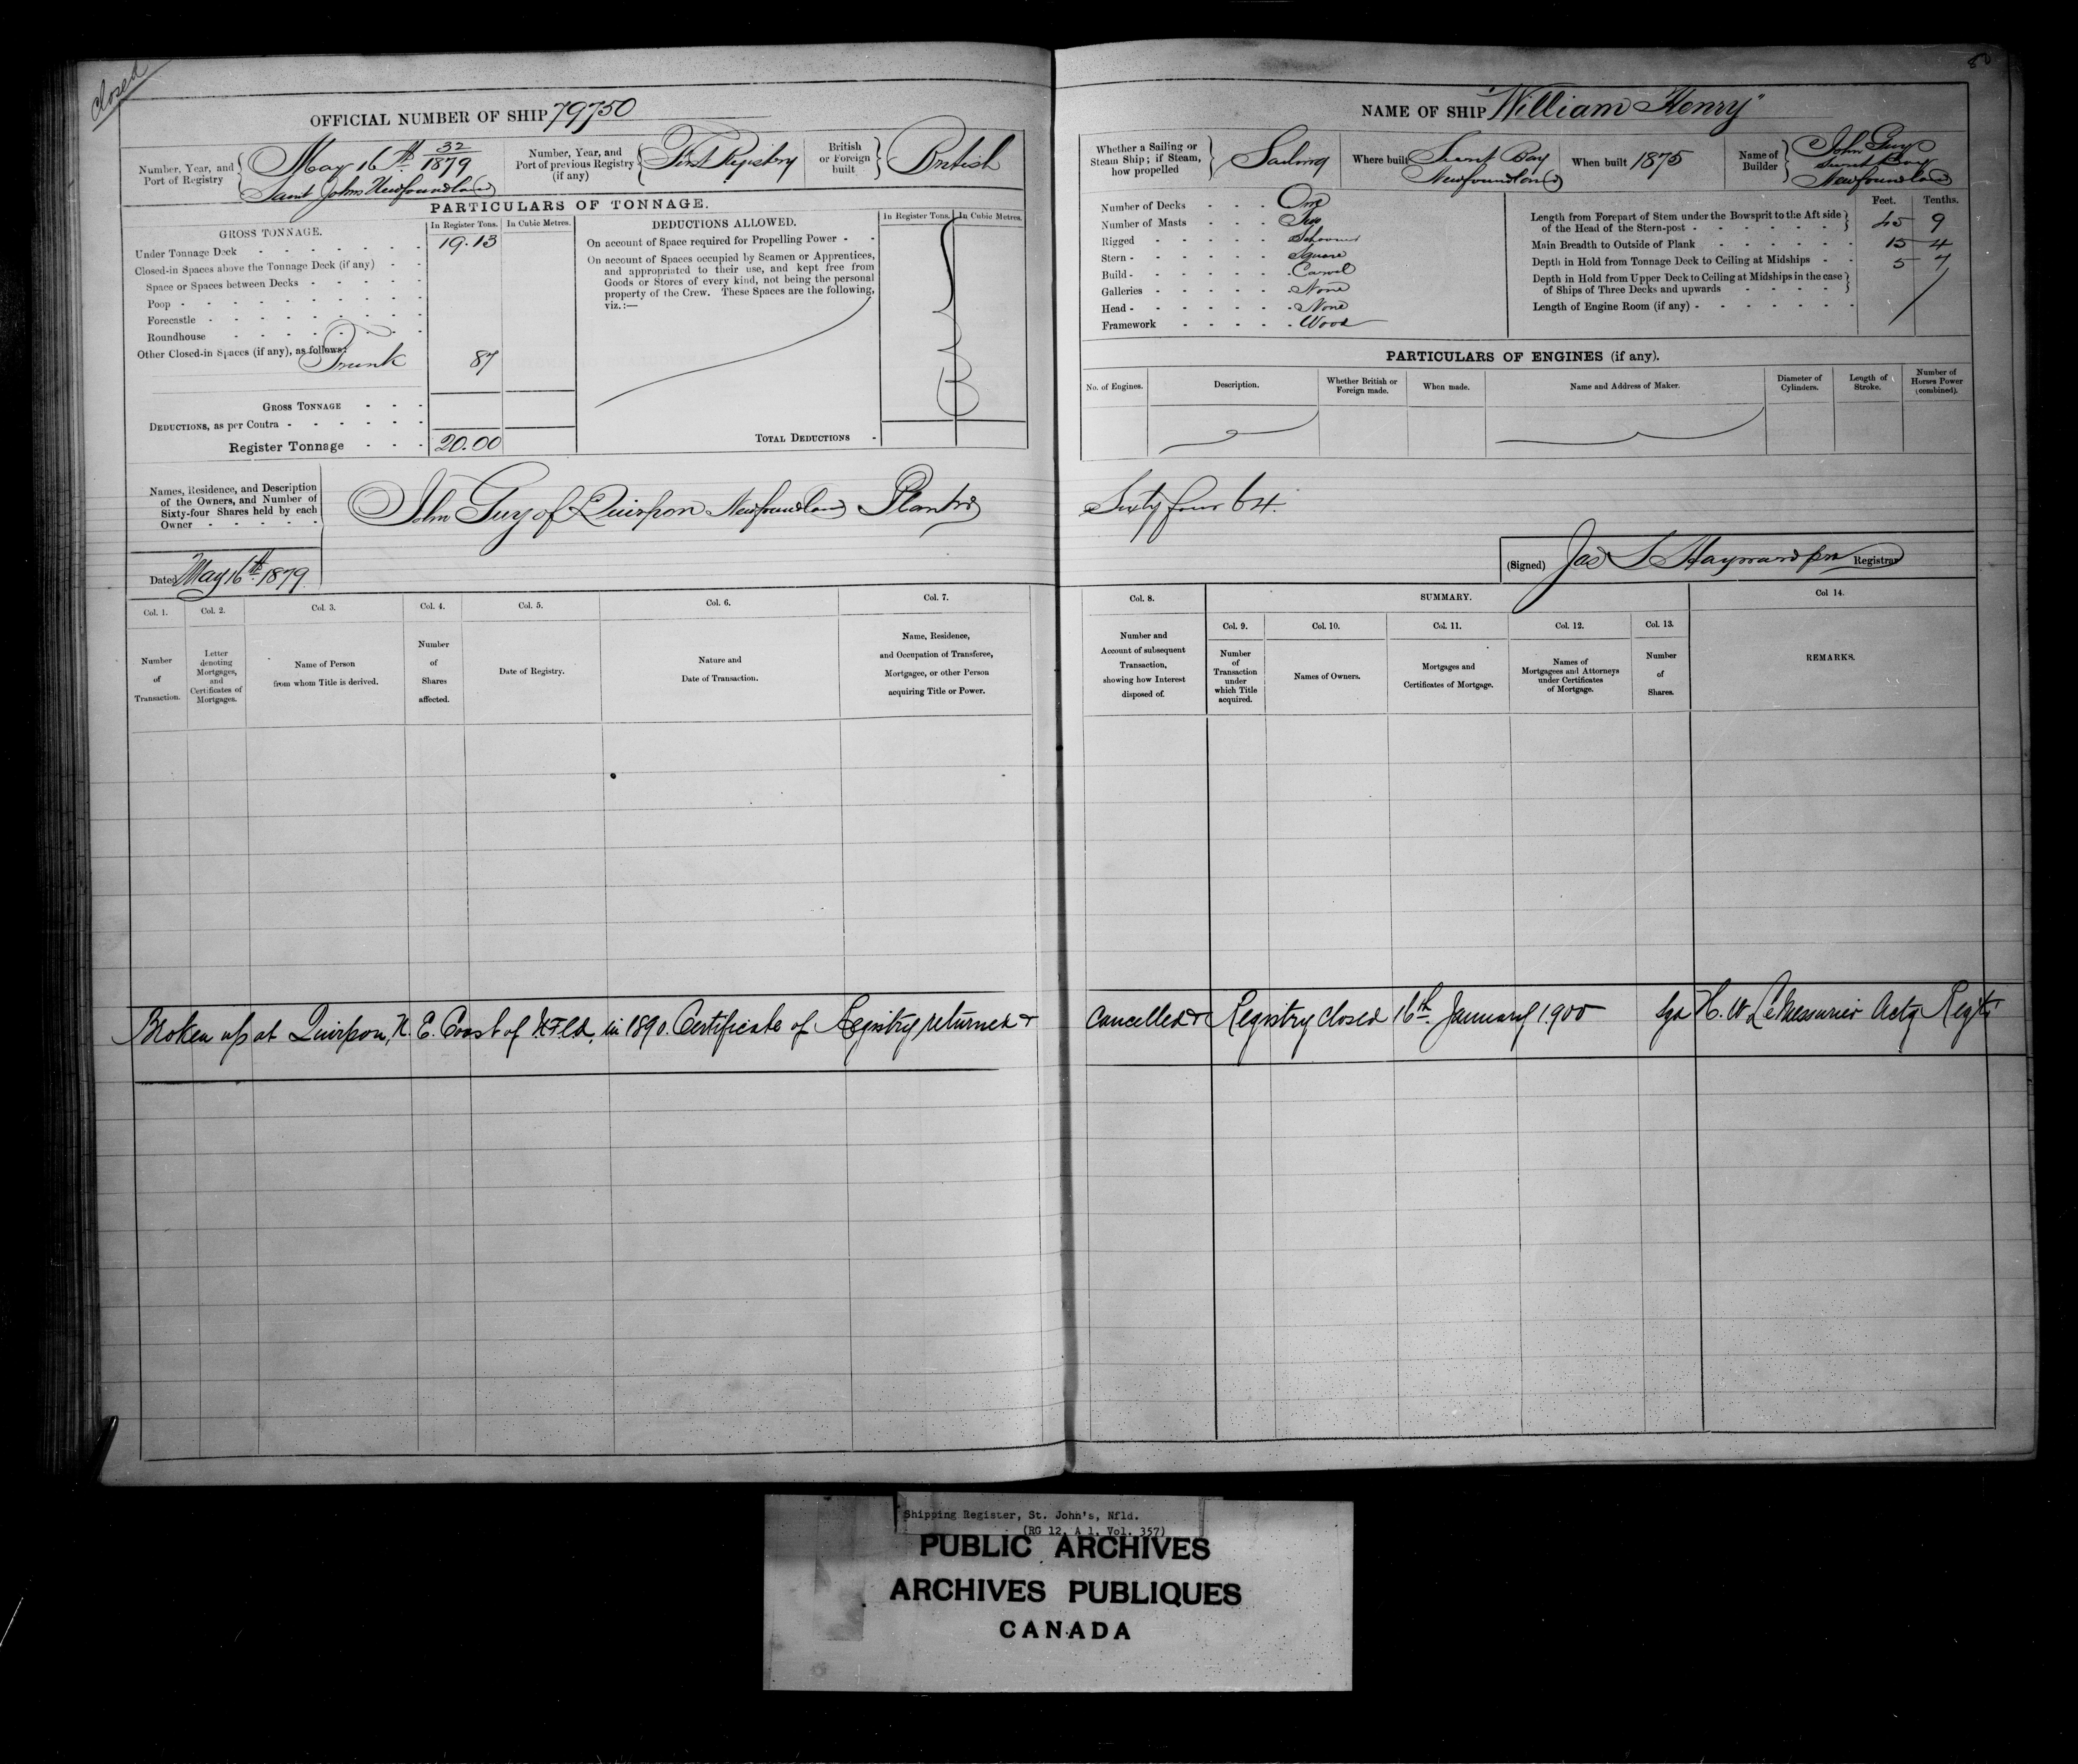 closed
80
OFFICIAL NUMBER OF SHIP 79750
NAME OF SHIP "William Henry"
Number, Year, and Port of Registry
May 16th 32/1879
Saint Johns Newfoundland
Number, Year, and Port of previous Registry (if any)
First Registry
British or Foreign built
British
PARTICULARS OF TONNAGE.
GROSS TONNAGE.
In Register Tons.
In Cubic Metres.
Under Tonnage Deck - 19.13
Closed-in Spaces above the Tonnage Deck (if any) - -
Space or Spaces between Decks -
Poop -
Forecastle -
Roundhouse -
Other Closed-in Spaces (if any), as follows:
Trunk 87
GROSS TONNAGE - - -
DEDUCTIONS, as per Contra -
Register Tonnage - - - 20.00
DEDUCTIONS ALLOWED.
In Register Tons.
In Cubic Metres.
On account of Space required for Propelling Power - -
On account of Spaces occupied by Seamen or Apprentices,
and appropriated to their use, and kept free from
Goods or Stores of every kind, not being the personal
property of the Crew. These Spaces are the following,
viz.:—
TOTAL DEDUCTIONS -
Names, Residence, and Description
of the Owners, and Number of
Sixty-four Shares held by each
Owner -
John Guy of Quirpon Newfoundland Planter
Dated May 16th 1879
Col. 1.
Number of Transaction.
Col. 2.
Letter denoting Mortgages, and Certificates of Mortgages.
Col. 3.
Name of Person from whom Title is derived.
Col. 4.
Number of Shares affected.
Col. 5.
Date of Registry.
Col. 6.
Nature and Date of Transaction.
Col. 7.
Name, Residence, and Occupation of Transferee, Mortgagee, or other Person acquiring Title or Power.
Whether a Sailing or Steam Ship; if Steam, how propelled
Sailing
Where built
Bay
Newfoundland
When built 1875
Name of Builder
John Guy
Bay
Newfoundland
Number of Decks - - - One
Number of Masts - - - Two
Rigged - Schooner
Stern - Square
Build - Carvel
Galleries - None
Head - None
Framework - Wood
Feet. Tenths.
Length from Forepart of Stem under the Bowsprit to the Aft side of the Head of the Stern-post - 45 9
Main Breadth to Outside of Plank - 15 4
Depth in Hold from Tonnage Deck to Ceiling at Midships - 5 7
Depth in Hold from Upper Deck to Ceiling at Midships in the case of Ships of Three Decks and upwards -
Length of Engine Room (if any) -
PARTICULARS OF ENGINES (if any).
No. of Engines.
Description.
Whether British or Foreign made.
When made.
Name and Address of Maker.
Diameter of Cylinders.
Length of Stroke.
Number of Horses Power (combined).
Sixty four 64
(Signed) Jas S Hayward Registrar
Col. 8.
Number and Account of subsequent Transaction, showing how Interest disposed of.
SUMMARY.
Col. 9.
Number of Transaction under which Title acquired.
Col. 10.
Names of Owners.
Col. 11.
Mortgages and Certificates of Mortgage.
Col. 12.
Names of Mortgagees and Attorneys under Certificates of Mortgage.
Col. 13.
Number of Shares.
Col 14.
REMARKS.
Broken up at Quirpon, N. E. Coast of NFld, in 1890. Certificate of Registry returned & Cancelled & Registry closed 16th January 1900 sgd H. W LeMessurier Actg Regtr
Shipping Register, St. John's, Nfld.
(RG 12, A 1, Vol. 357)
PUBLIC ARCHIVES
ARCHIVES PUBLIQUES
CANADA